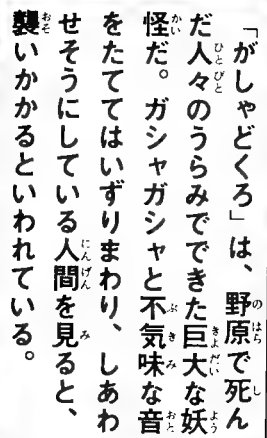 「がしゃどくろ」は、野原で死ん
だ人々のうらみでできた巨大な妖
怪だ。ガシャガシャと不気味な音
をたててはいずりまわり、しあわ
せそうにしている人間を見ると、
襲いかかるといわれている。